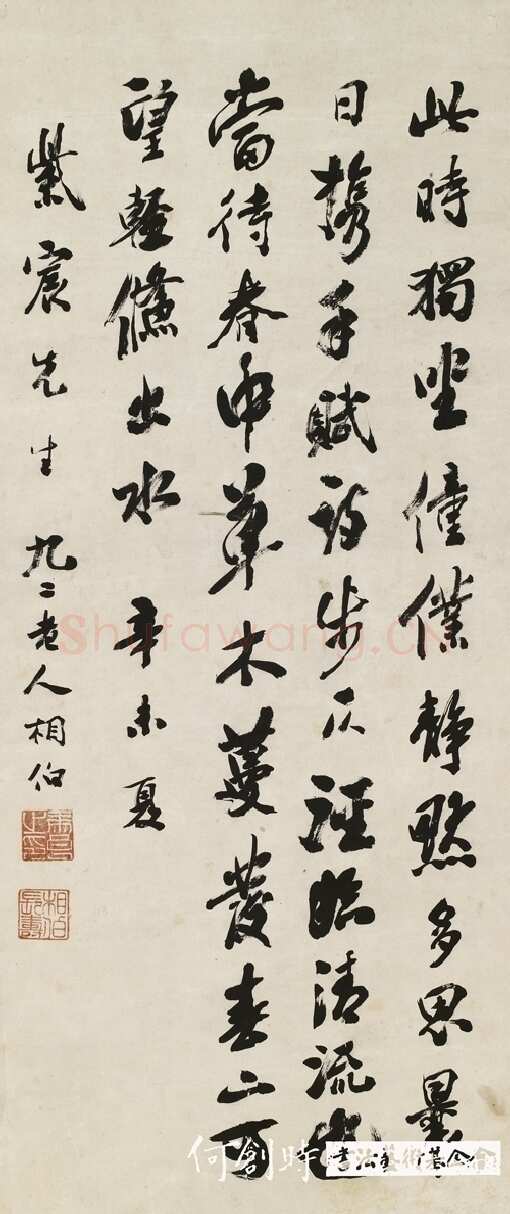 此時獨坐僮僕靜默多思曩
日携手賦詩步仄逕臨清流也
當待春中草木蔓發春山可
望輕鯈出水 辛未夏
紫宸先生 九二老人相伯
相伯長壽
Shufawang.CN
何創時書法藝術基金會